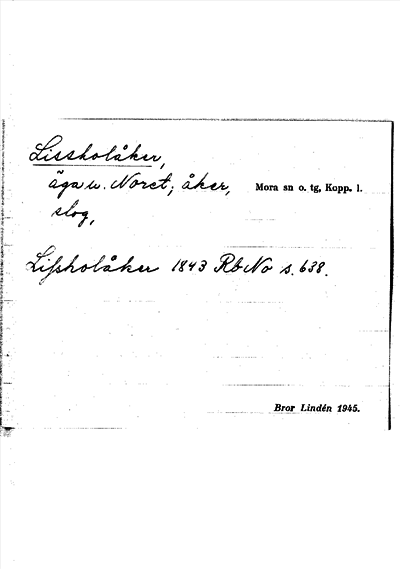 Lissholåker,
äga u. Noret; åker, Mora sn o. tg, Kopp. l.
slog,
Lissholåker 1843 Rb No s. 638.
Bror Lindén 1945.